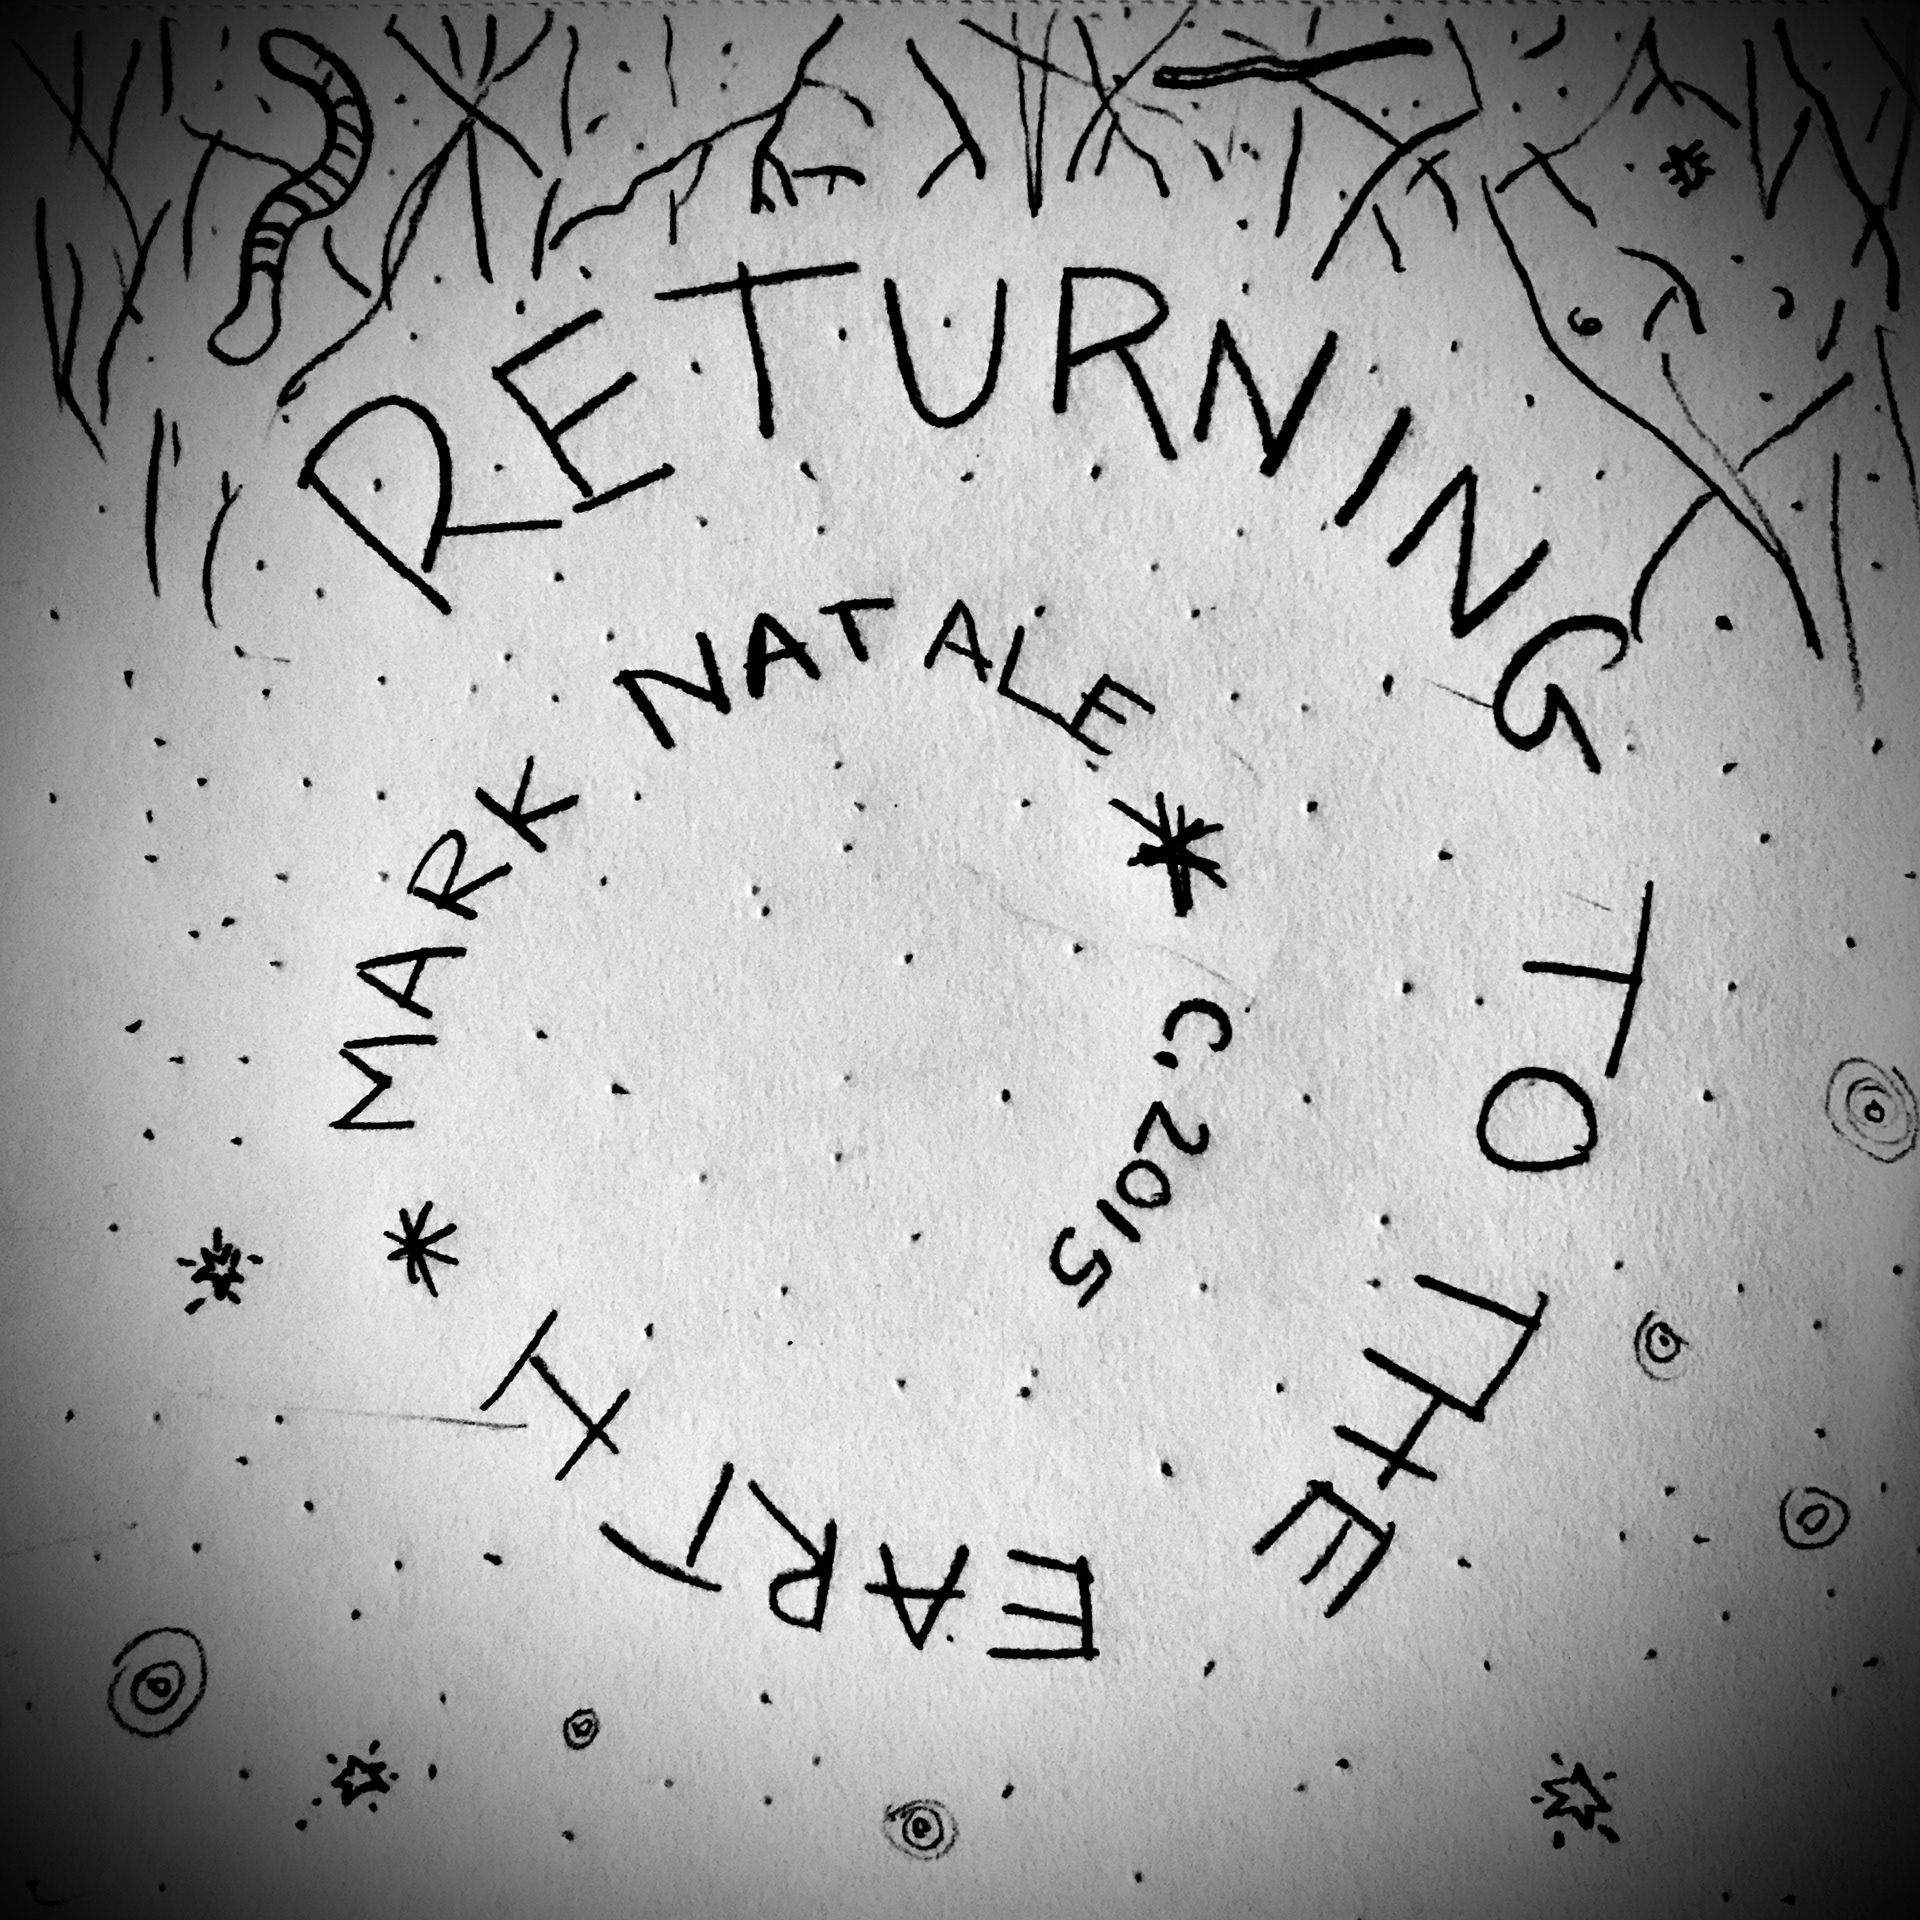 RETURNING TO THE EARTH
* MARK NATALE * C. 2015